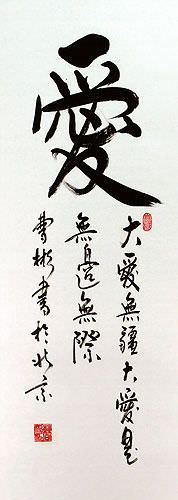 愛
大愛無疆大愛是
無邊無際
曹彬書於北京